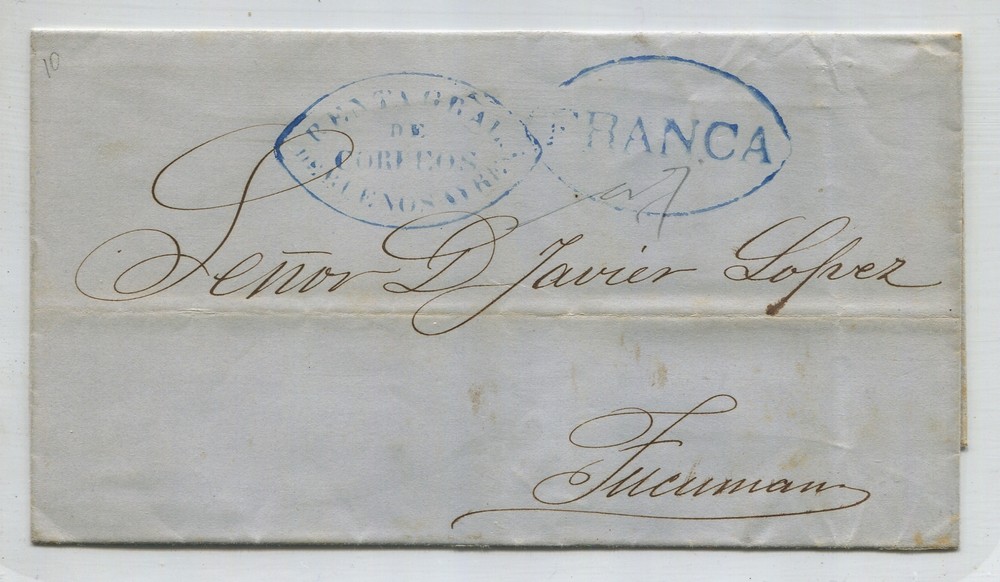 10
RENTA GRAL.
DE
CORREOS
DE BUENOS AYRES
FRANCA
Señor D Javier Lopez
Tucuman